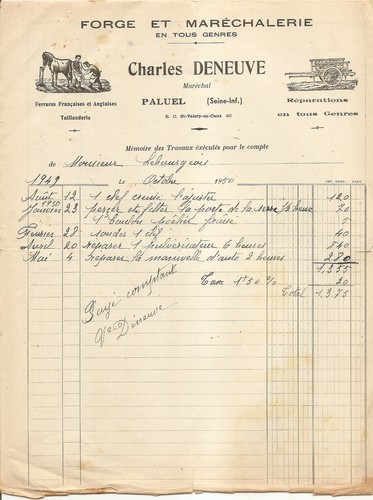 FORGE ET MARÉCHALERIE
EN TOUS GENRES
Charles DENEUVE
Maréchal
PALUEL (Seine-Inf.)
R. C. St-Valery-en-Caux 6C
Ferrures Françaises et Anglaises
Taillanderie
Réparations
en tous Genres
Mémoire des Travaux exécutés pour le compte
de Monsieur Lebourgeois
1949 Le Octobre 1950
Août 12 1 clef creuse l'ajuster 120
1950
Janvier 23 percer et fileter la porte de la serre 1/2 heure 70
1 boulon 5
Février 28 souder 1 clef 40
Avril 20 réparer 1 pulvérisateur 6 heures 840
Mai 4 réparer la manivelle d'auto 2 heures 280
1,355
Taxe 1,50 % 20
Total 1,375
Payé comptant
Deneuve